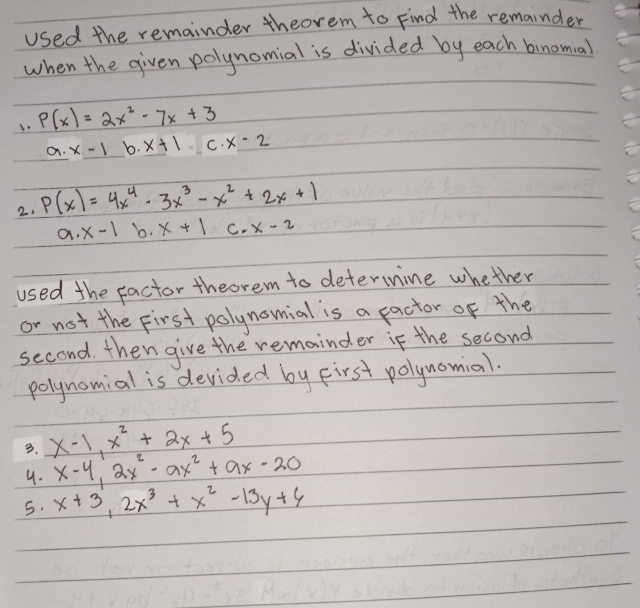 used the remainder theorem to find the remainder
when the given polynomial is divided by each binomial
1. P(x) = 2x² - 7x + 3
a. x - 1 b. x + 1 c. x - 2
2. P(x) = 4x⁴ - 3x³ - x² + 2x + 1
a. x - 1 b. x + 1 c. x - 2
used the factor theorem to determine whether
or not the first polynomial is a factor of the
second. then give the remainder if the second
polynomial is devided by first polynomial.
3. x - 1, x² + 2x + 5
4. x - 4, 2x² - ax² + ax - 20
5. x + 3, 2x³ + x² - 13y +